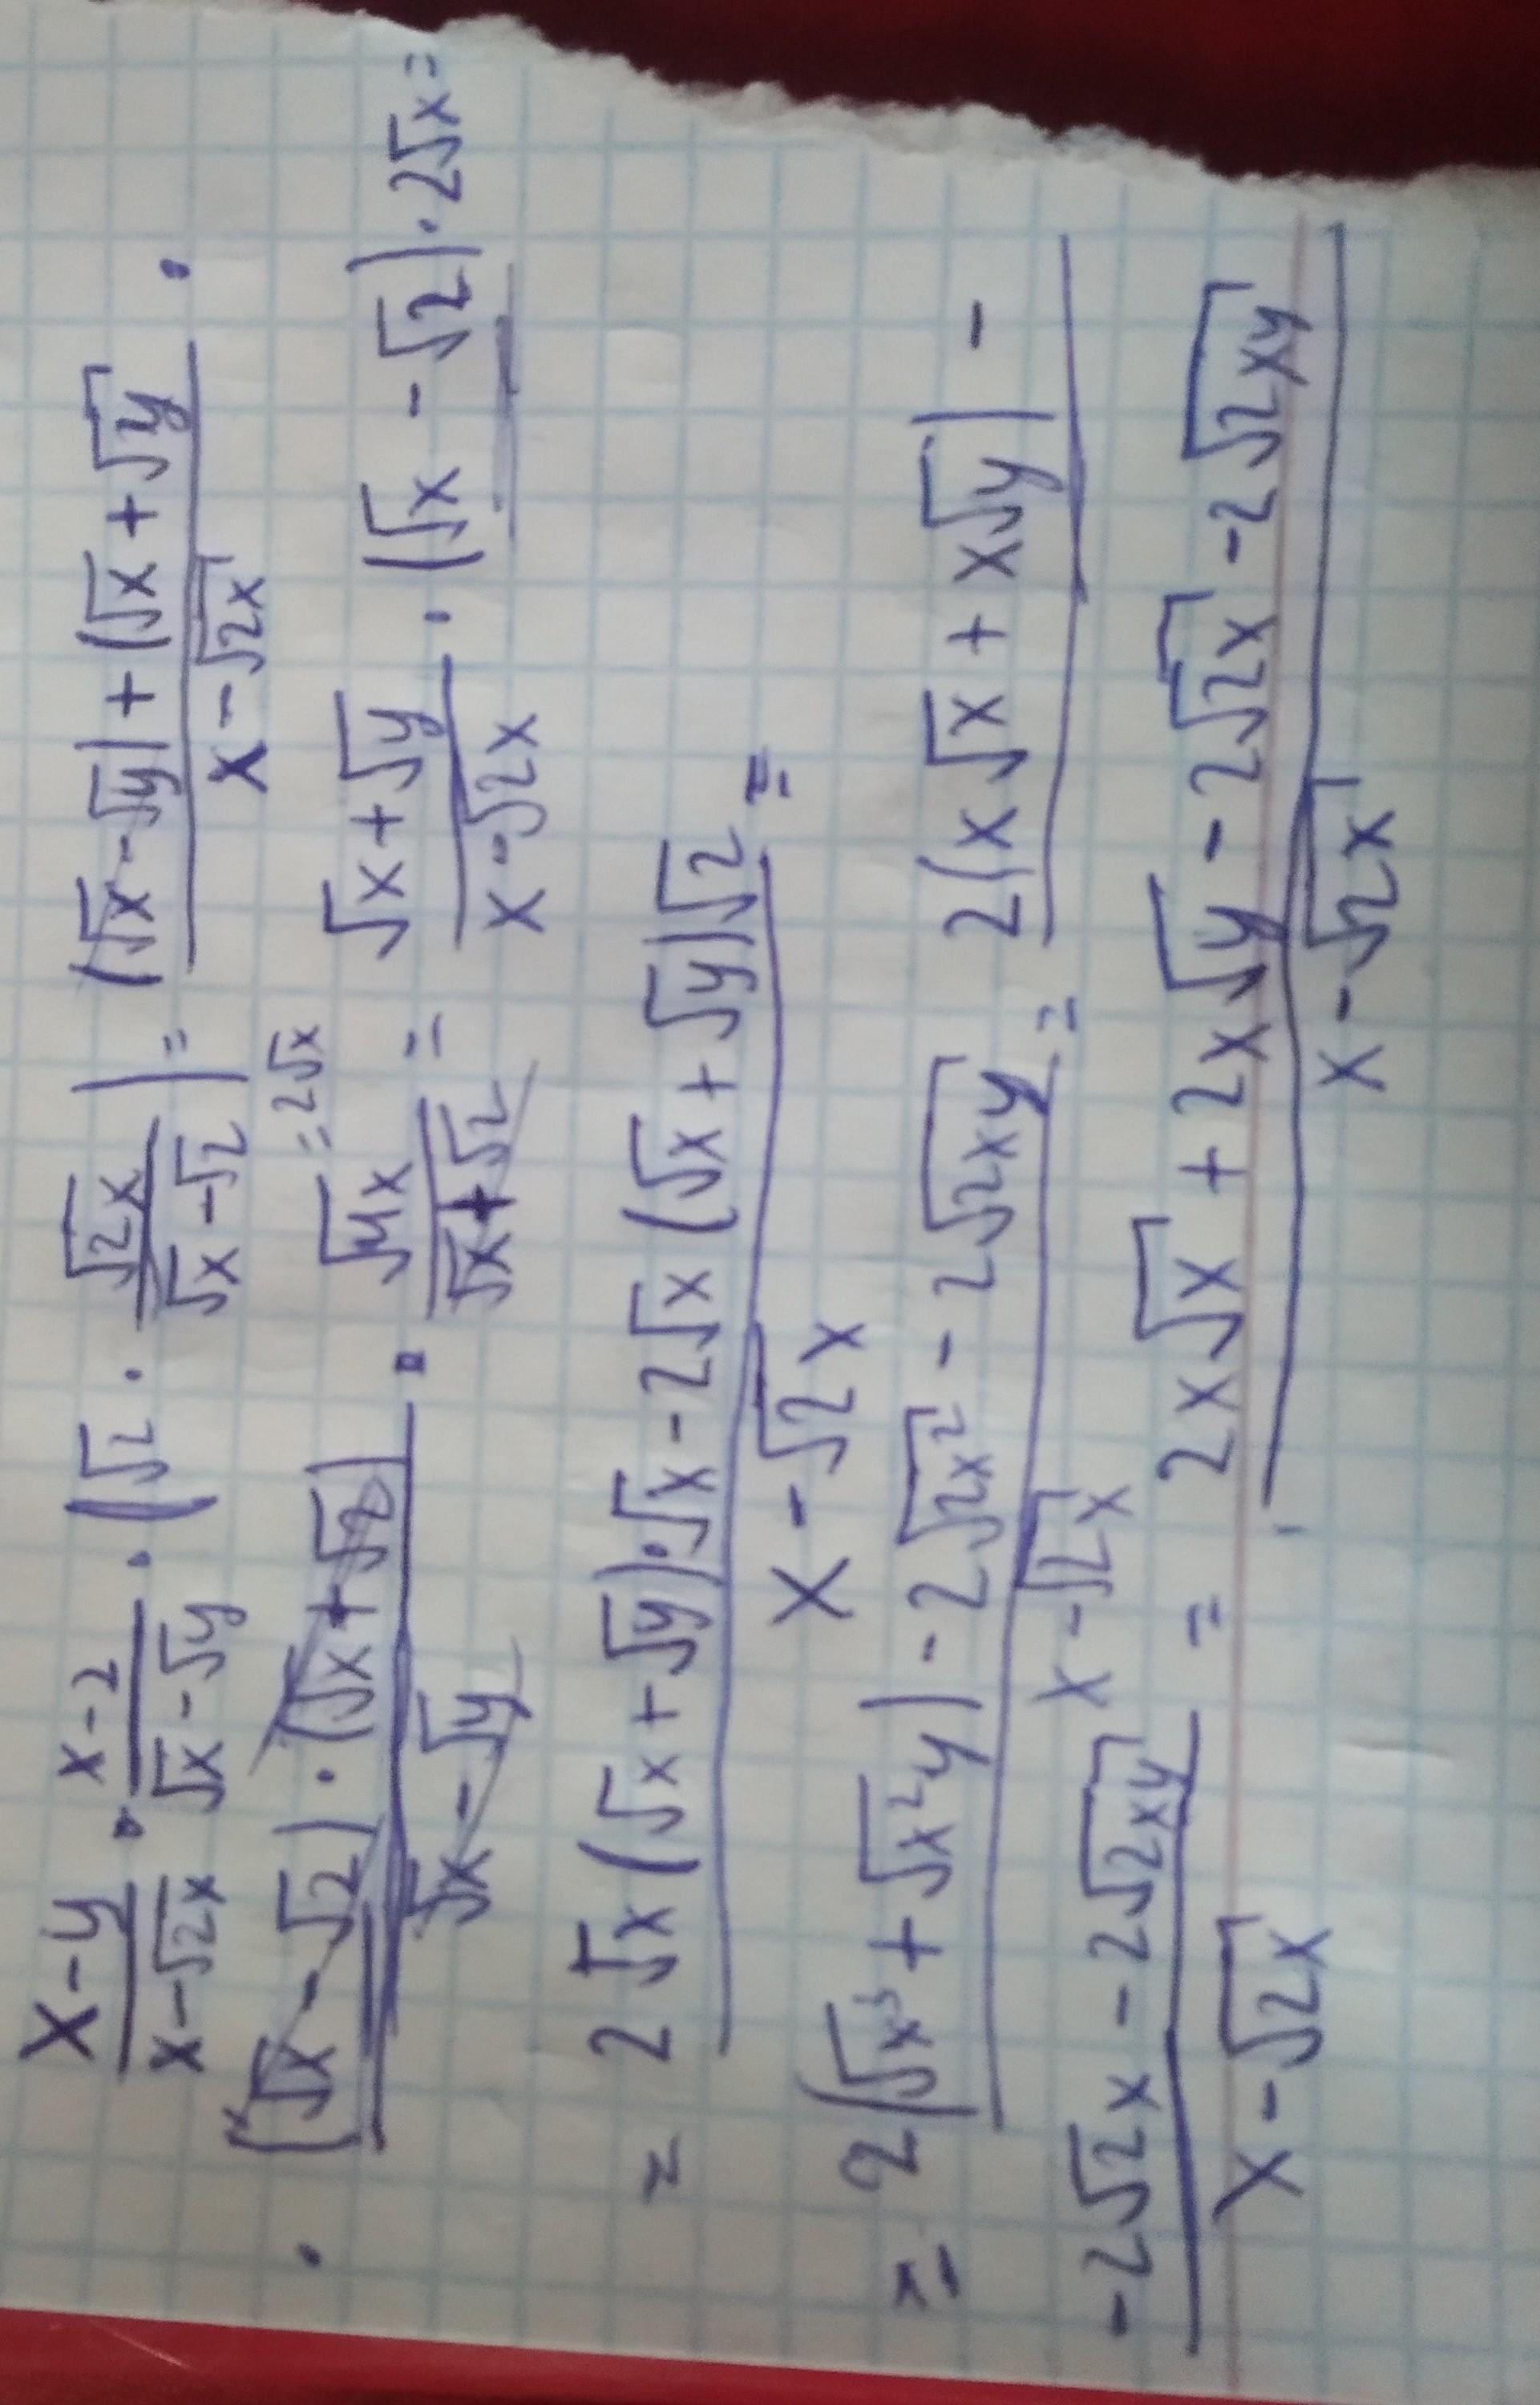 (x-y)/(x-√2x) · (x-2)/(√x-√y) · (√2 · √2x/(√x-√2)) = ((√x-√y)+(√x+√y)/(x-√2x) ·
= 2√x
· ((√x-√2)·(√x+√2))/(√x-√y) · √4x/(√x+√2) = (√x+√y)/(x-√2x) · (√x-√2)·2√x=
= (2√x(√x+√y)·√x-2√x(√x+√y)√2)/(x-√2x) =
= (2(√x³+√x²y)-2√2x²-2√2xy)/(x-√2x) = (2(x√x+x√y)-
(-2√2x-2√2xy)/(x-√2x) = (2x√x+2x√y-2√2x-2√2xy)/(x-√2x)